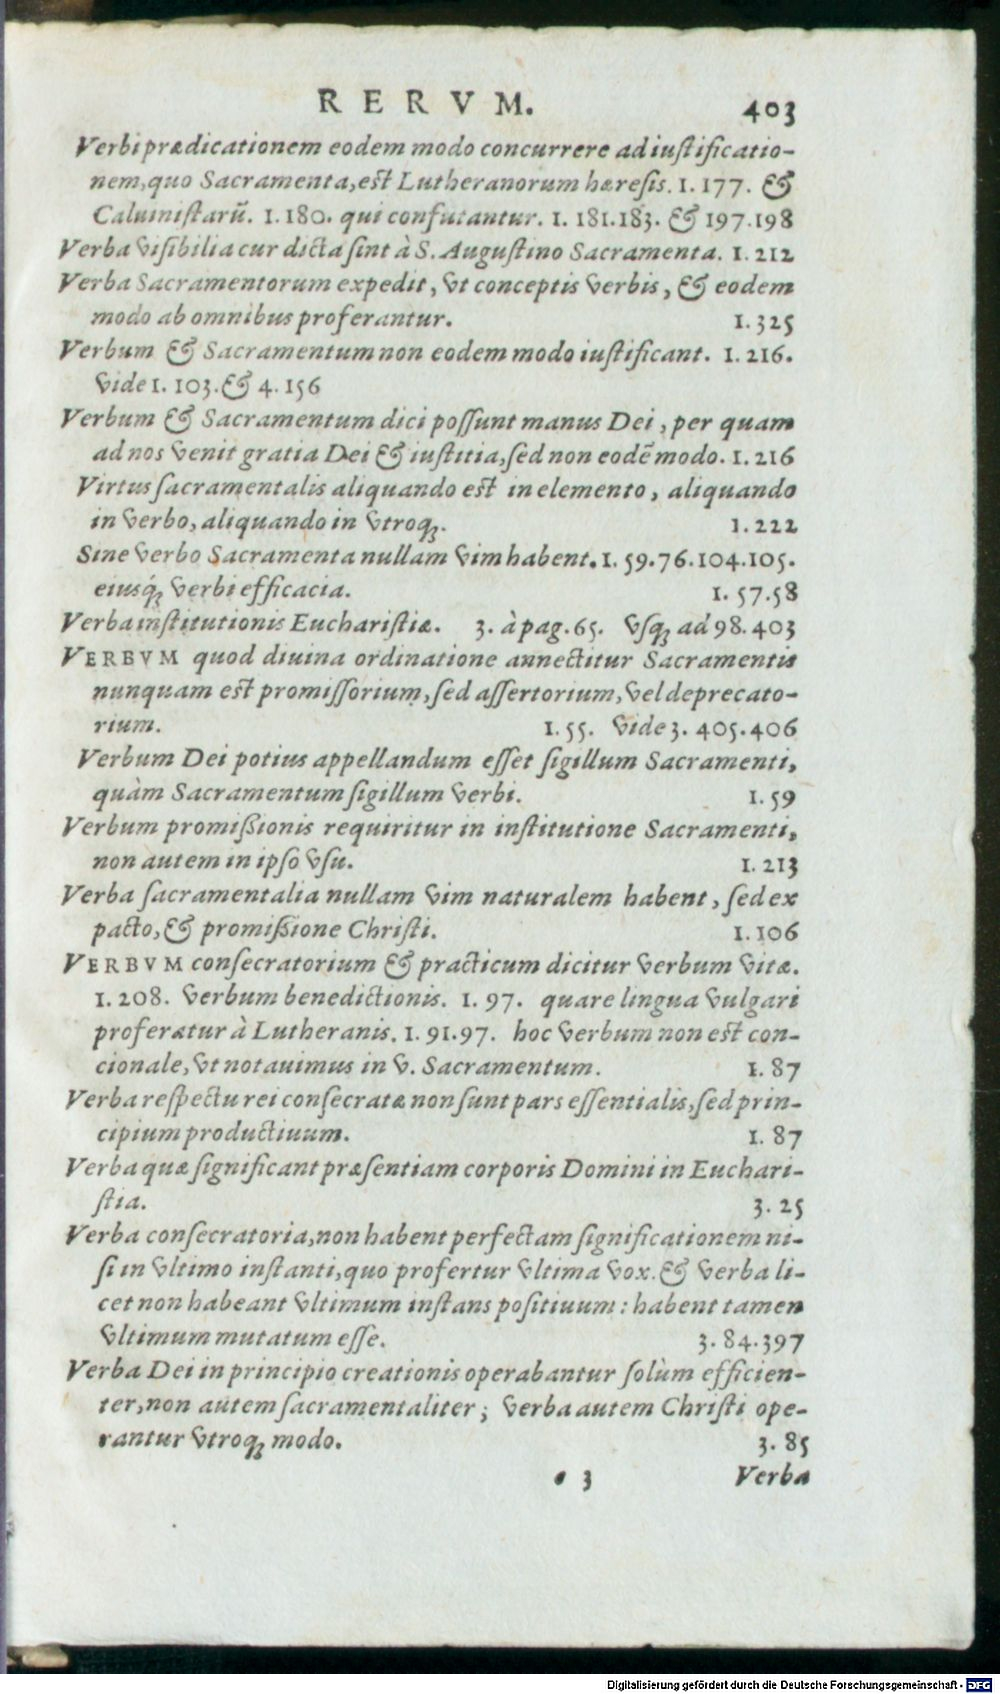 RERVM. 403
Verbi prædicationem eodem modo concurrere ad iustificatio-
nem, quo Sacramenta, est Lutheranorum hæresis. 1. 177. &
Caluinistarū. 1. 180. qui confutantur. 1. 181.183. & 197.198
Verba visibilia cur dicta sint à S. Augustino Sacramenta. 1. 212
Verba Sacramentorum expedit, vt conceptis verbis, & eodem
modo ab omnibus proferantur. 1. 325
Verbum & Sacramentum non eodem modo iustificant. 1. 216.
vide 1. 103. & 4. 156
Verbum & Sacramentum dici possunt manus Dei, per quam
ad nos venit gratia Dei & iustitia, sed non eodē modo. 1. 216
Virtus sacramentalis aliquando est in elemento, aliquando
in verbo, aliquando in vtroq́;. 1. 222
Sine verbo Sacramenta nullam vim habent. 1. 59.76.104.105.
eiusq́; verbi efficacia. 1. 57.58
Verba institutionis Eucharistiæ. 3. à pag. 65. vsq; ad 98. 403
VERBVM quod diuina ordinatione annectitur Sacramentis
nunquam est promissorium, sed assertorium, vel deprecato-
rium. 1. 55. vide 3. 405.406
Verbum Dei potius appellandum esset sigillum Sacramenti,
quàm Sacramentum sigillum verbi. 1. 59
Verbum promißionis requiritur in institutione Sacramenti,
non autem in ipso vsu. 1. 213
Verba sacramentalia nullam vim naturalem habent, sed ex
pacto, & promißione Christi. 1. 106
VERBVM consecratorium & practicum dicitur verbum vitæ.
1. 208. verbum benedictionis. 1. 97. quare lingua vulgari
proferatur à Lutheranis. 1. 91.97. hoc verbum non est con-
cionale, vt notauimus in v. Sacramentum. 1. 87
Verba respectu rei consecratæ non sunt pars essentialis, sed prin-
cipium productiuum. 1. 87
Verba quæ significant præsentiam corporis Domini in Euchari-
stia. 3. 25
Verba consecratoria, non habent perfectam significationem ni-
si in vltimo instanti, quo profertur vltima vox. & verba li-
cet non habeant vltimum instans positiuum: habent tamen
vltimum mutatum esse. 3. 84.397
Verba Dei in principio creationis operabantur solùm efficien-
ter, non autem sacramentaliter; verba autem Christi ope-
rantur vtroq; modo. 3. 85
3 Verba
Digitalisierung gefördert durch die Deutsche Forschungsgemeinschaft - DFG